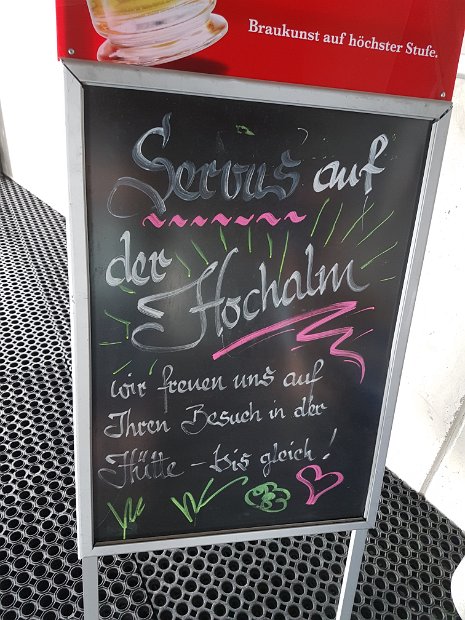 Braukunst auf höchster Stufe.
Servus auf
der
Hochalm
wir freuen uns auf
Ihren Besuch in der
Hütte - bis gleich!